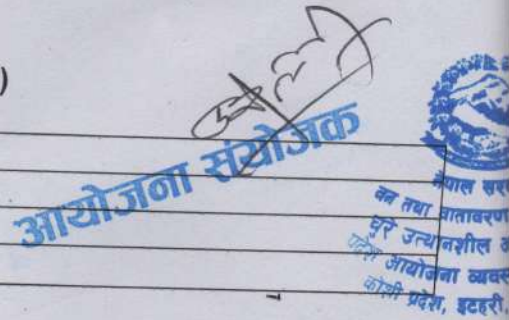 )
आयोजना संयोजक
नेपाल सर
वन तथा वातावरण
चुरे उत्थानशील
प्रदेश आयोजना व्यवस
कोशी प्रदेश, इटहरी,